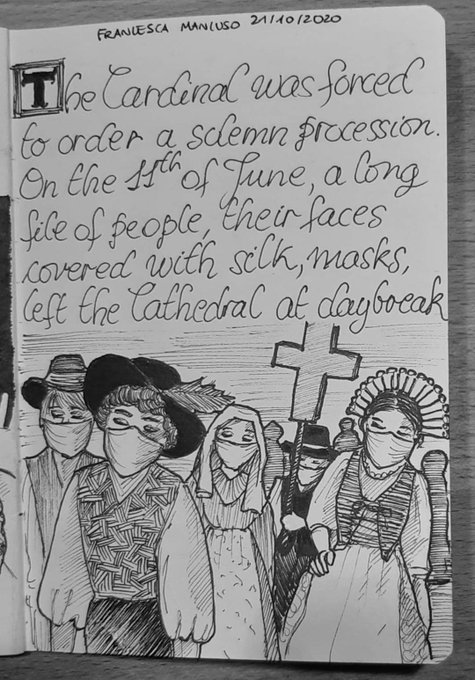 FRANCESCA MANCUSO 21/10/2020
The Cardinal was forced
to order a solemn procession.
On the 11th of June, a long
file of people, their faces
covered with silk, masks,
left the Cathedral at daybreak